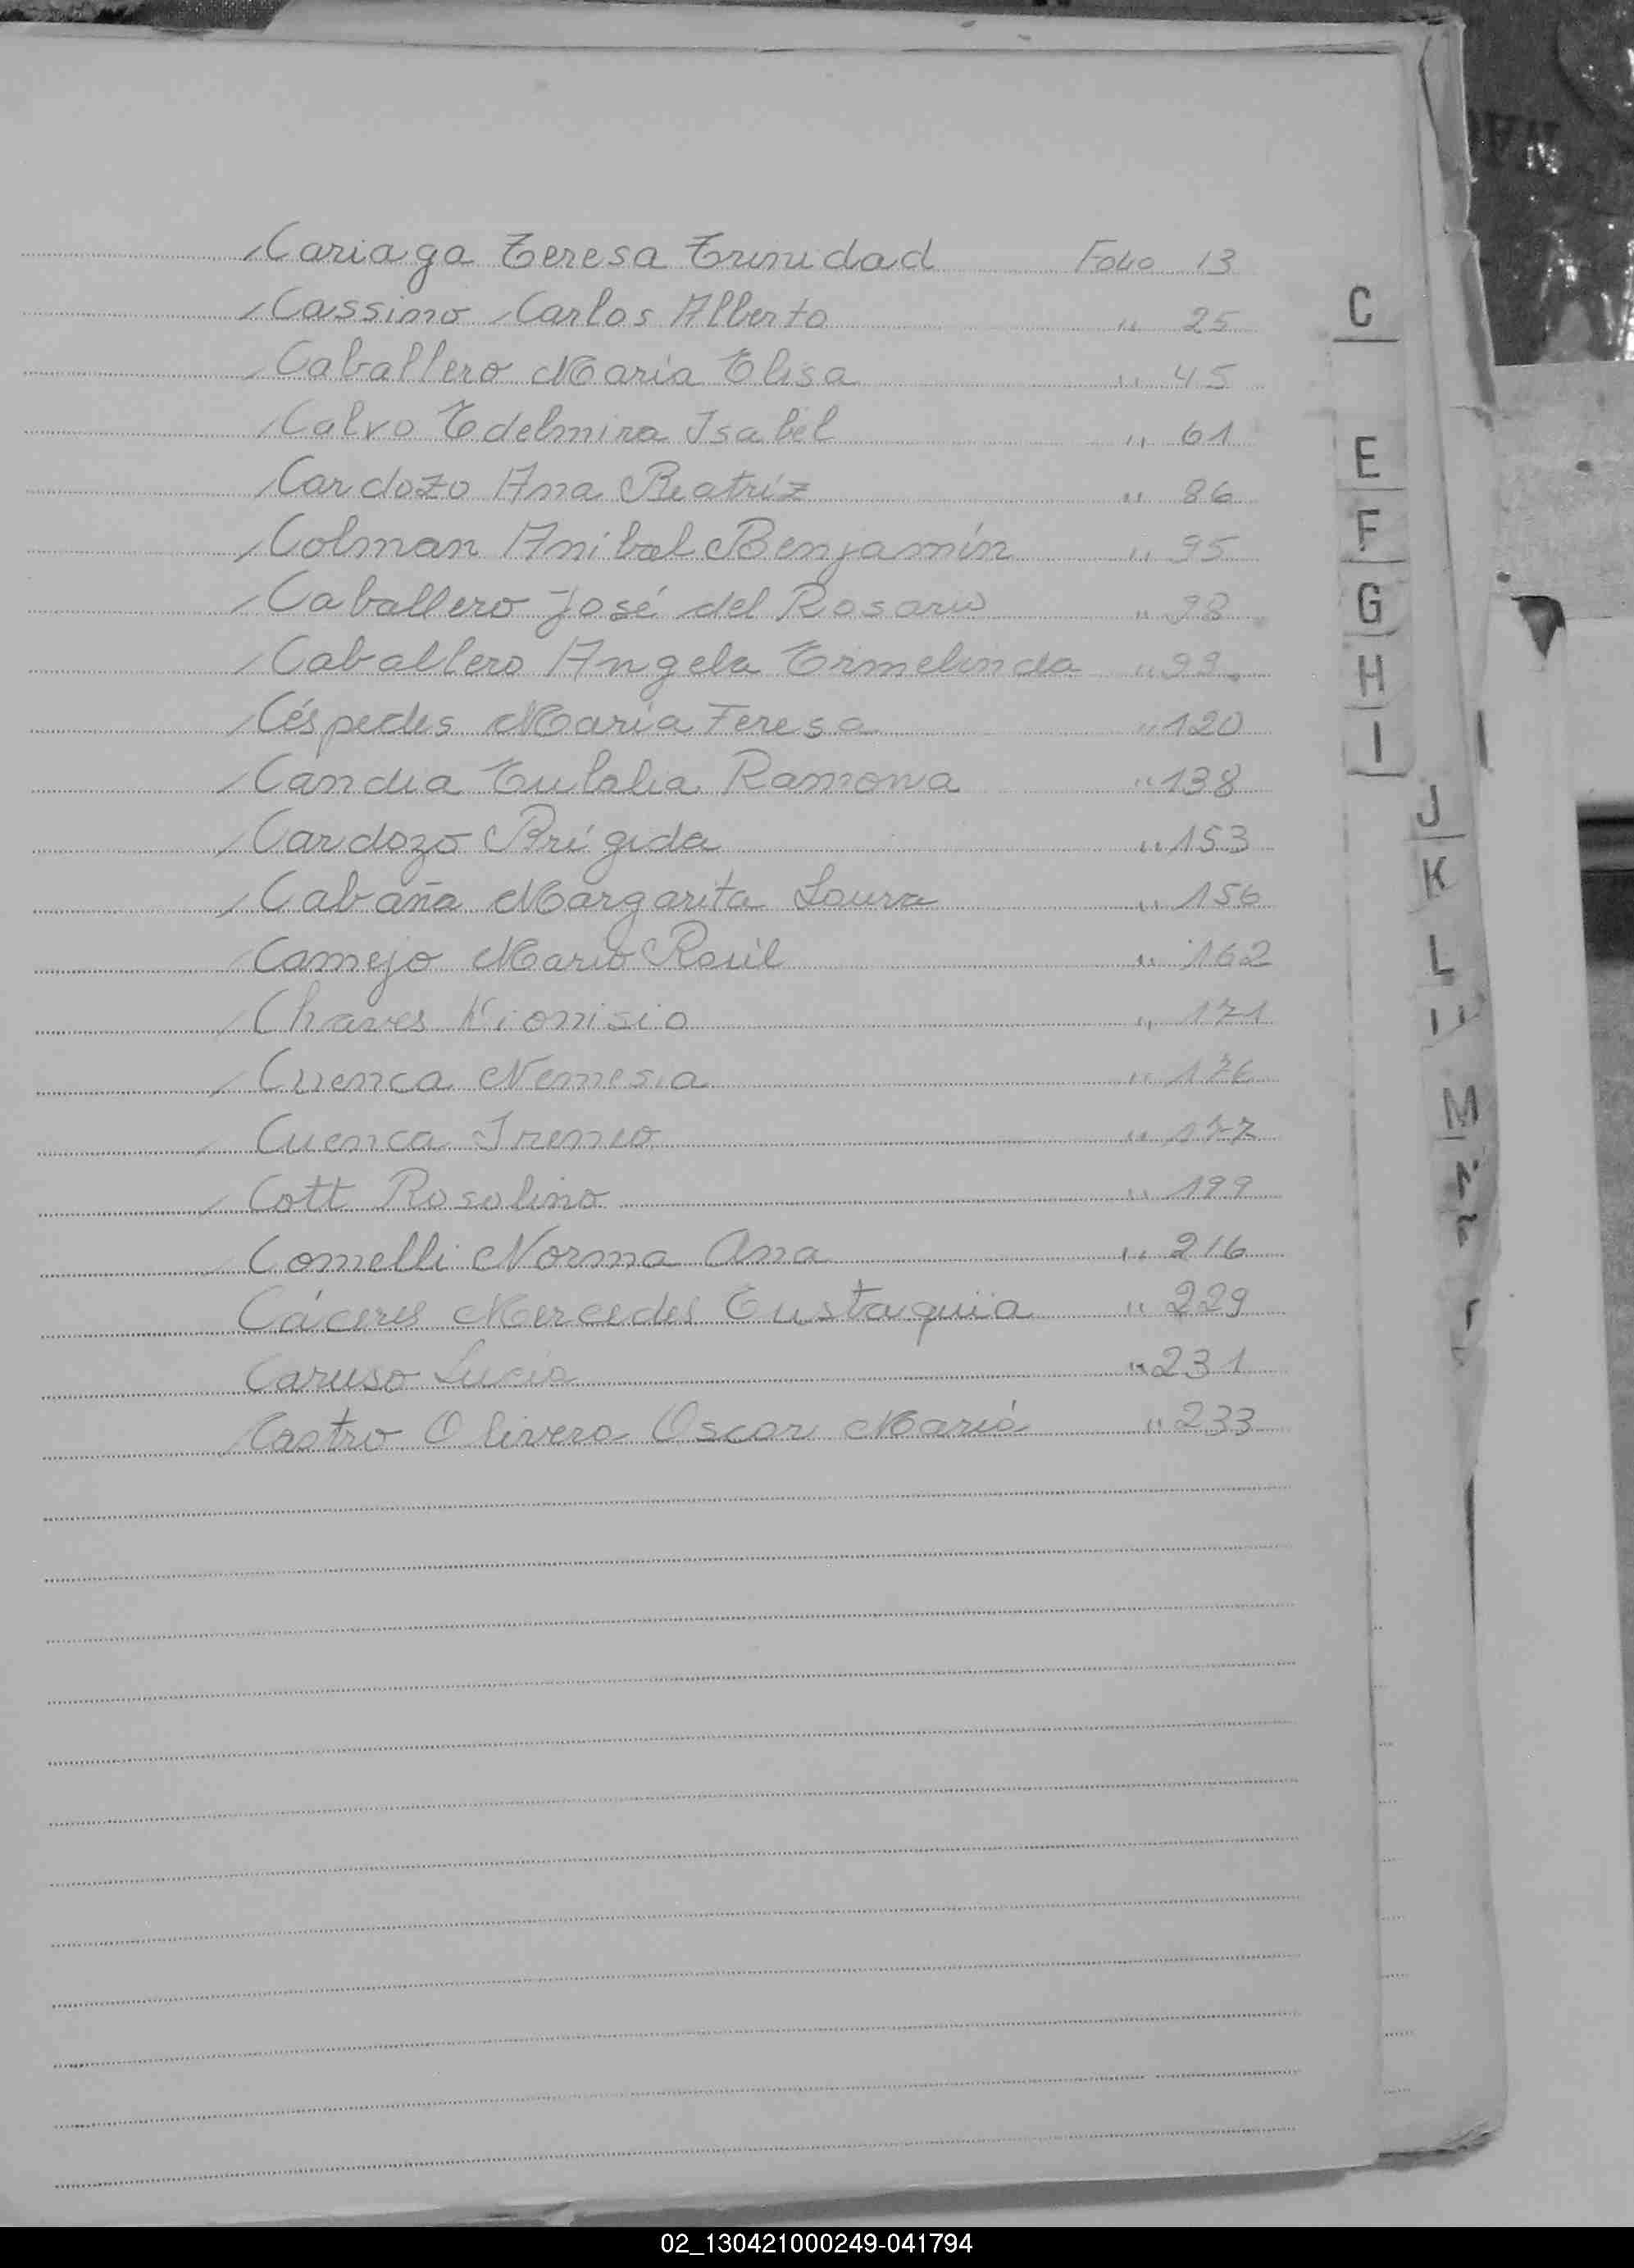 Cariaga Teresa Trinidad Folio 13
Cassino Carlos Alberto " 25
Caballero Maria Elisa " 45
Calvo Edelmira Isabel " 61
Cardozo Ana Beatriz " 86
Colman Anibal Benjamín " 95
Caballero José del Rosario " 98
Caballero Angela Ermelinda " 99
Céspedes Maria Teresa " 120
Candia Eulalia Ramona " 138
Cardozo Brígida " 153
Cabaña Margarita Laura " 156
Camejo Mario Raúl " 162
Chaves Dionisio " 171
Cuenca Nemesia " 176
Cuenca Ireneo " 177
Cott Rosolino " 199
Comelli Norma Ana " 216
Cáceres Mercedes Eustaquia " 229
Caruso Lucia " 231
Castro Olivera Oscar Mario " 233
C
E
F
G
H
I
J
K
L
M
02_130421000249-041794